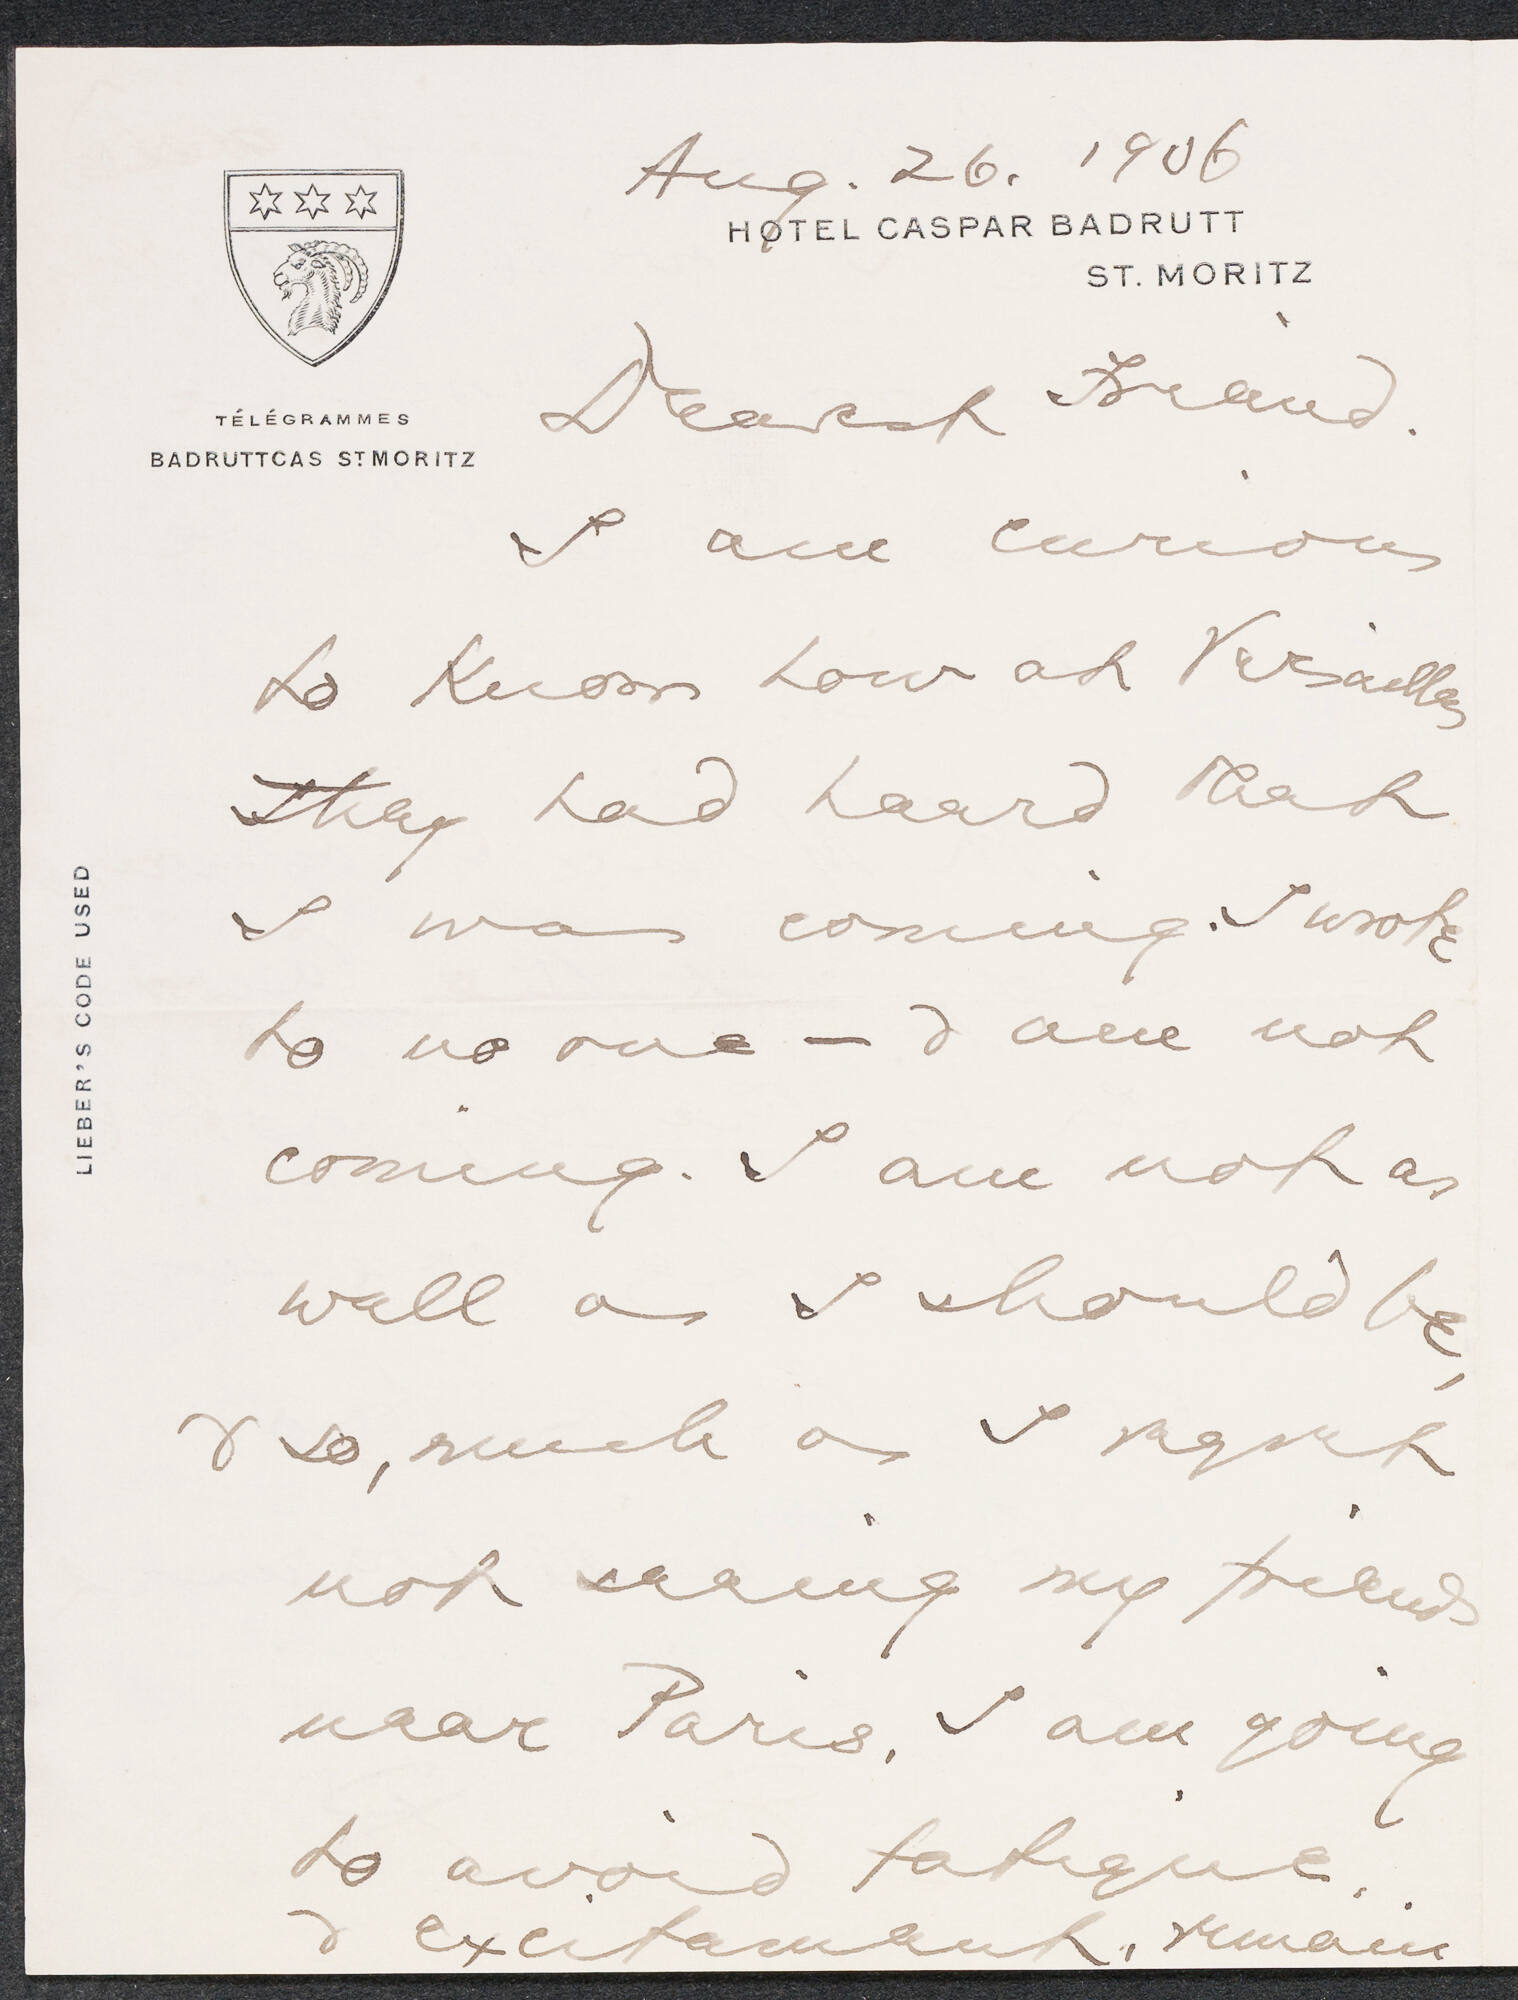 Aug. 26. 1906
HOTEL CASPAR BADRUTT
ST. MORITZ
TÉLÉGRAMMES
BADRUTTCAS ST MORITZ
LIEBER'S CODE USED
Dearest Friend.
I am curious
to know how at Versailles
they had heard that
I was coming. I wrote
to no one – & am not
coming. I am not as
well as I should be,
& so, much as I regret
not seeing my friends
near Paris, I am going
to avoid fatigue,
& excitement, remain